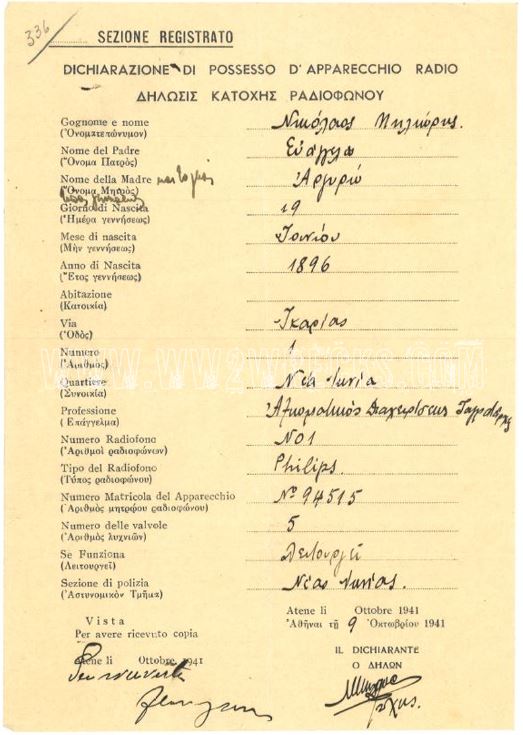 336
SEZIONE REGISTRATO
DICHIARAZIONE DI POSSESSO D'APPARECCHIO RADIO
ΔΗΛΩΣΙΣ ΚΑΤΟΧΗΣ ΡΑΔΙΟΦΩΝΟΥ
Gognome e nome Νικόλαος
(Ὀνοματεπώνυμον)
Nome del Padre
(Ὄνομα Πατρὸς)
Nome della Madre Ἀργυρώ
(Ὄνομα Μητρὸς)
Giorno di Nascita 19
(Ἡμέρα γεννήσεως)
Mese di nascita Ἰουνίου
(Μὴν γεννήσεως)
Anno di Nascita 1896
(Ἔτος γεννήσεως)
Abitazione
(Κατοικία)
Via Ἰκαρίας
(Ὁδὸς)
Numero 1
(Ἀριθμὸς)
Quartiere Νέα Ἰωνία
(Συνοικία)
Professione Ἀξιωματικὸς Διαχειρίσεως
(Ἐπάγγελμα)
Numero Radiofono No 1
(Ἀριθμοὶ ραδιοφώνων)
Tipo del Radiofono Philips
(Τύπος ραδιοφώνου)
Numero Matricola del Apparecchio No 94515
(Ἀριθμὸς μητρῴου ραδιοφώνου)
Numero delle valvole 5
(Ἀριθμὸς λυχνιῶν)
Se Funziona Λειτουργεῖ
(Λειτουργεῖ)
Sezione di polizia Νέας Ἰωνίας.
(Ἀστυνομικὸν Τμῆμα)
WWW.WW2WRECKS.COM
Atene li Ottobre 1941
Vista Ἀθῆναι τῇ 9 Ὀκτωβρίου 1941
Per avere ricevuto copia
IL DICHIARANTE
Ο ΔΗΛΩΝ
Atene li Ottobre 1941